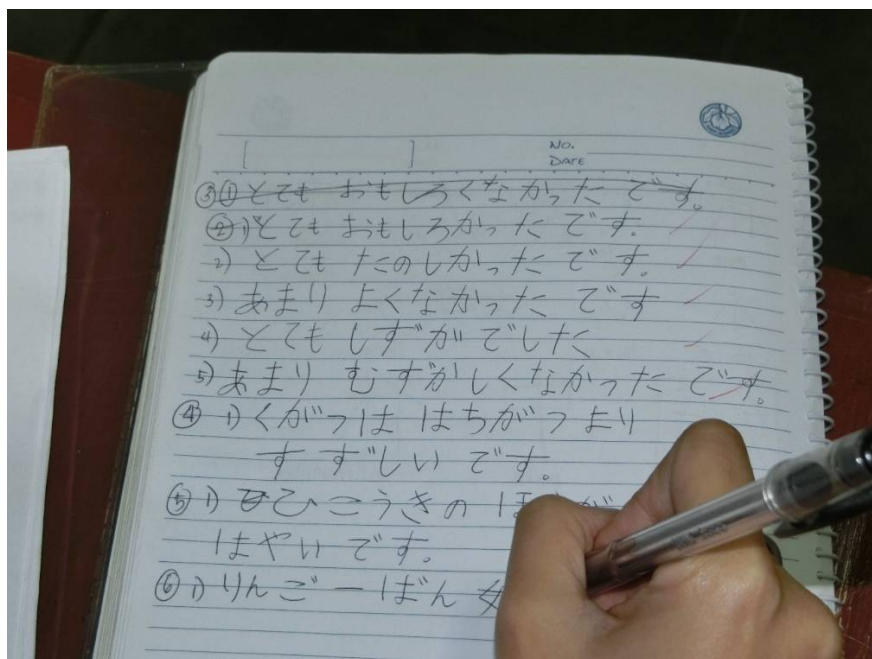 [ ]
NO.
DATE
③① とても おもしろくなかった です。
② 1) とても おもしろかった です。
2) とても たのしかった です。
3) あまり よくなかった です
4) とても しずがでした
5) あまり むずがしくなかった です。
④ 1) くがつは はちがつ より
すずしい です。
⑤ 1) ひこうきの
はやいです。
⑥ 1) りんご 一ばん